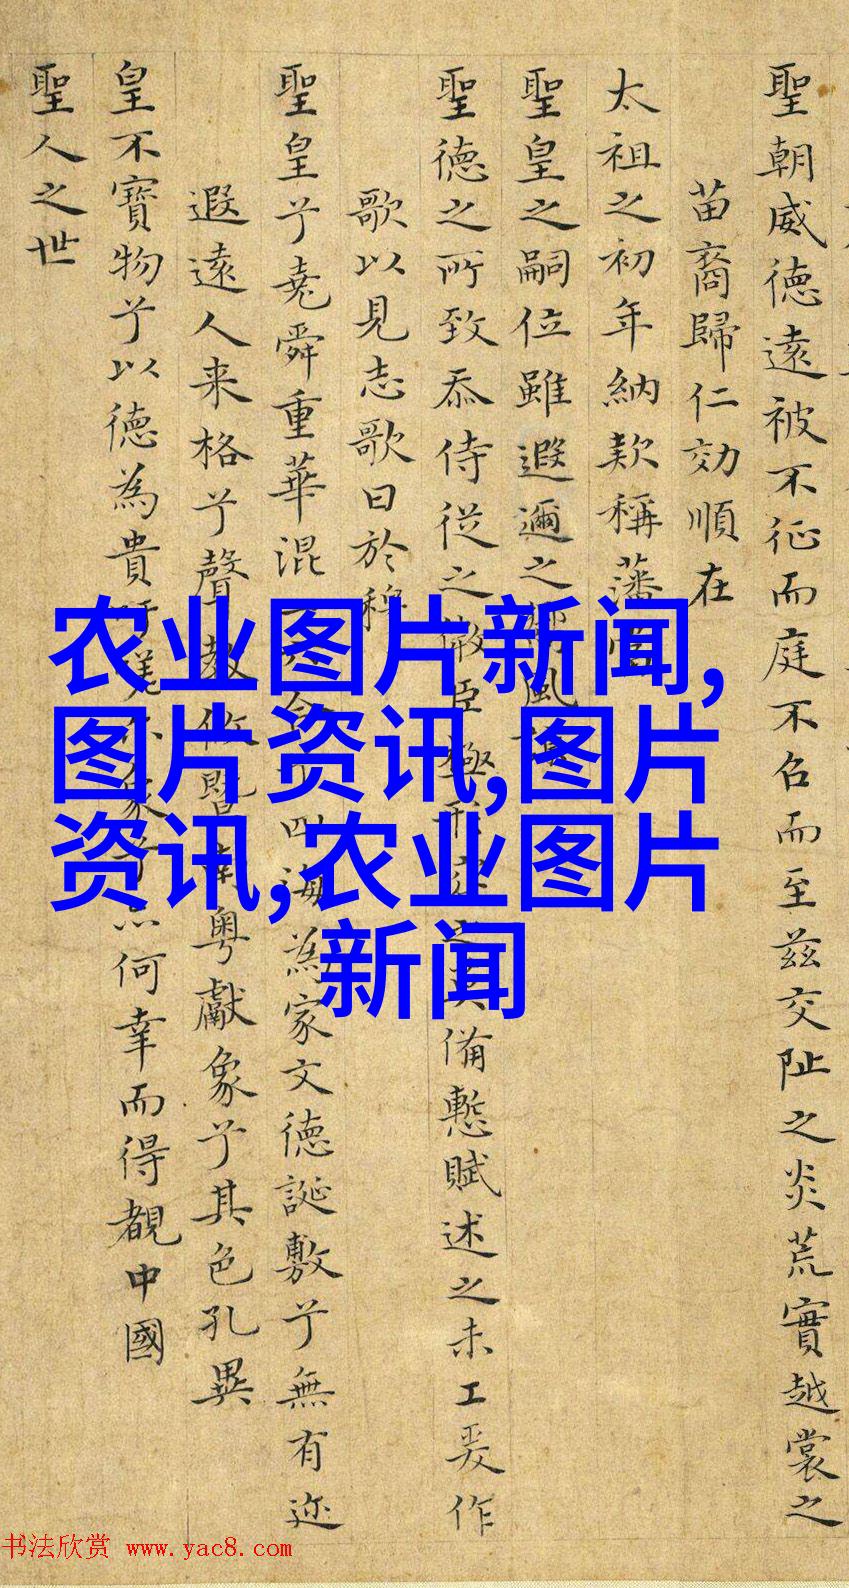 聖朝威德遠被不征而庭不召而至茲交阯之炎荒實越裳之
苗裔歸仁効順在
太祖之初年納款稱藩
聖皇之嗣位雖遐邇之風
聖德之所致忝侍從之臣備慙賦述之未工爰作
歌以見志歌曰於穆
聖皇兮堯舜重華混四海為家文德誕敷兮無有迩
遐遠人来格兮聲教暨粵獻象兮其色孔異
皇不寶物兮以德為貴何幸而得覩中國
聖人之世
农业图片新闻,
图片资讯,图片
资讯,农业图片
新闻
书法欣赏 www.yac8.com